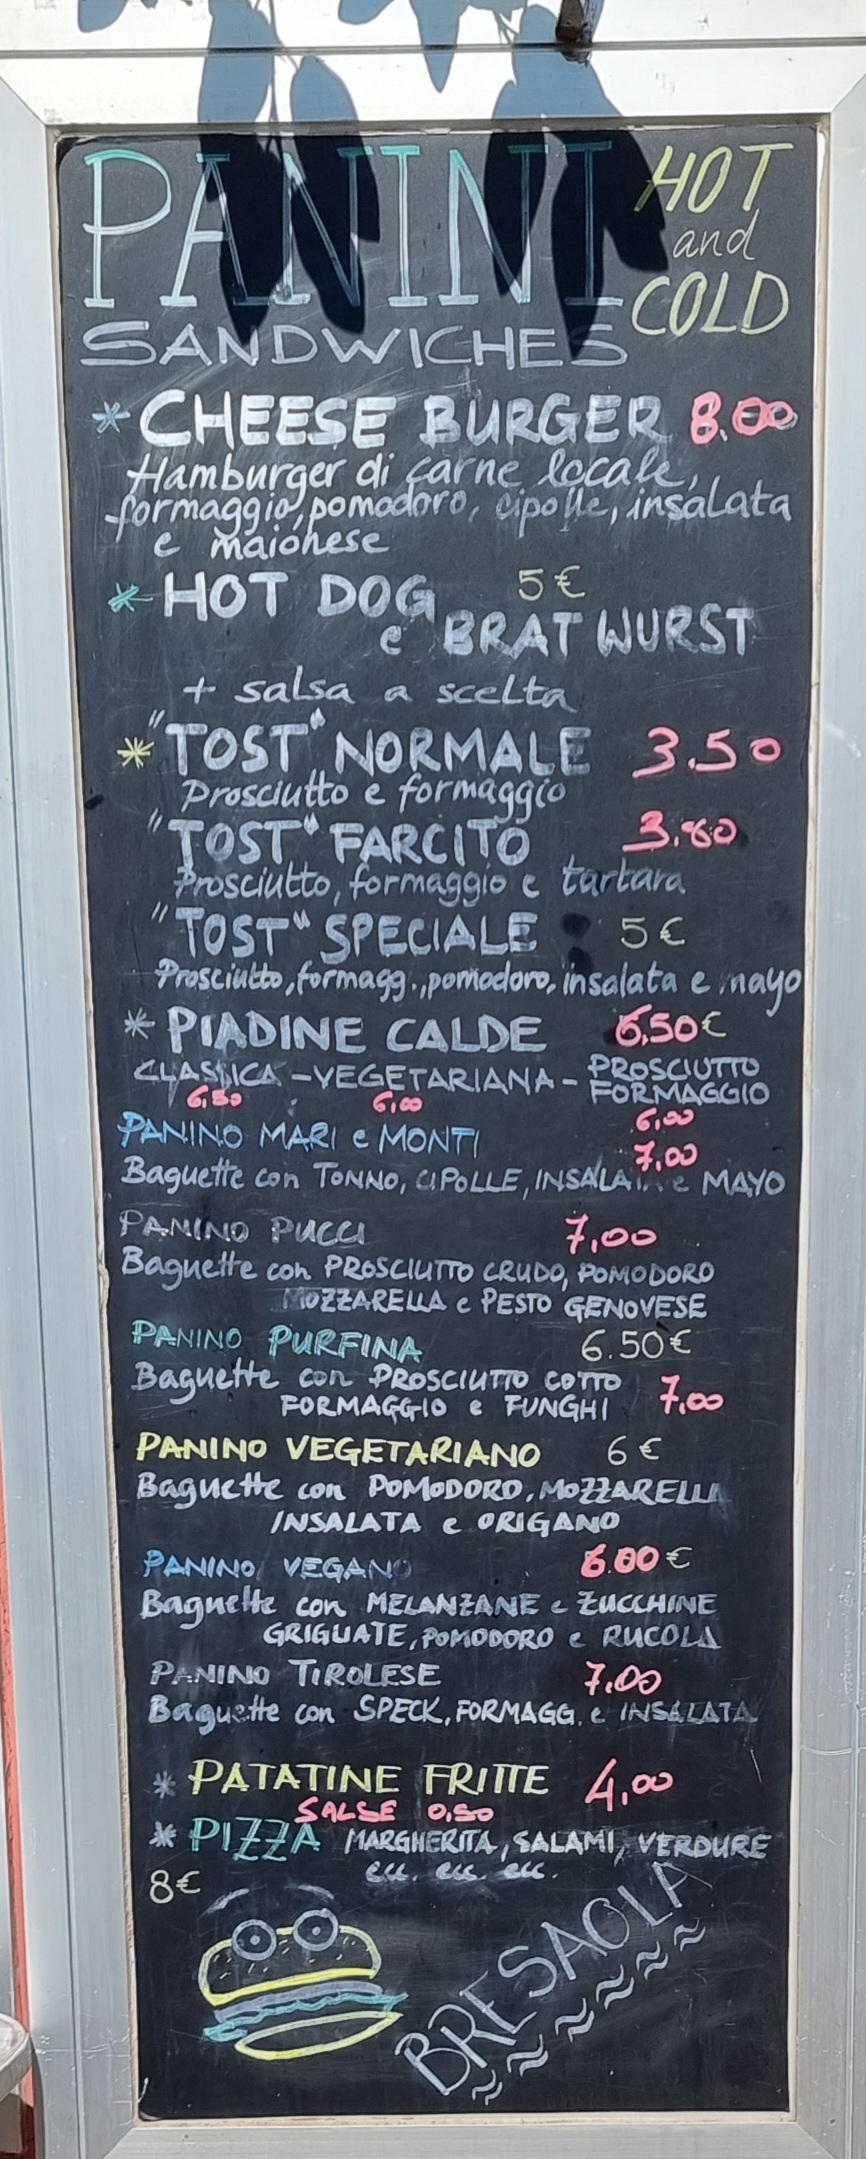 PANINI HOT
and
COLD
SANDWICHES
* CHEESE BURGER 8.00
Hamburger di carne locale,
formaggio, pomodoro, cipolle, insalata
e maionese
* HOT DOG 5€
e BRAT WURST
+ salsa a scelta
* "TOST" NORMALE 3.50
Prosciutto e formaggio
"TOST" FARCITO 3.80
Prosciutto, formaggio e tartara
"TOST" SPECIALE 5€
Prosciutto, formagg., pomodoro, insalata e mayo
* PIADINE CALDE 6,50€
CLASSICA - VEGETARIANA - PROSCIUTTO
FORMAGGIO
6,50 6,00 6,00
PANINO MARI e MONTI 7,00
Baguette con TONNO, CIPOLLE, INSALATA e MAYO
PANINO PUCCI 7,00
Baguette con PROSCIUTTO CRUDO, POMODORO
MOZZARELLA e PESTO GENOVESE
PANINO PURFINA 6.50€
Baguette con PROSCIUTTO COTTO
FORMAGGIO e FUNGHI 7,00
PANINO VEGETARIANO 6€
Baguette con POMODORO, MOZZARELLA
INSALATA e ORIGANO
PANINO VEGANO 6.00€
Baguette con MELANZANE e ZUCCHINE
GRIGLIATE, POMODORO e RUCOLA
PANINO TIROLESE 7,00
Baguette con SPECK, FORMAGG. e INSALATA
* PATATINE FRITTE 4,00
SALSE 0,50
* PIZZA MARGHERITA, SALAMI, VERDURE
ecc. ecc. ecc.
8€
BRESAOLA